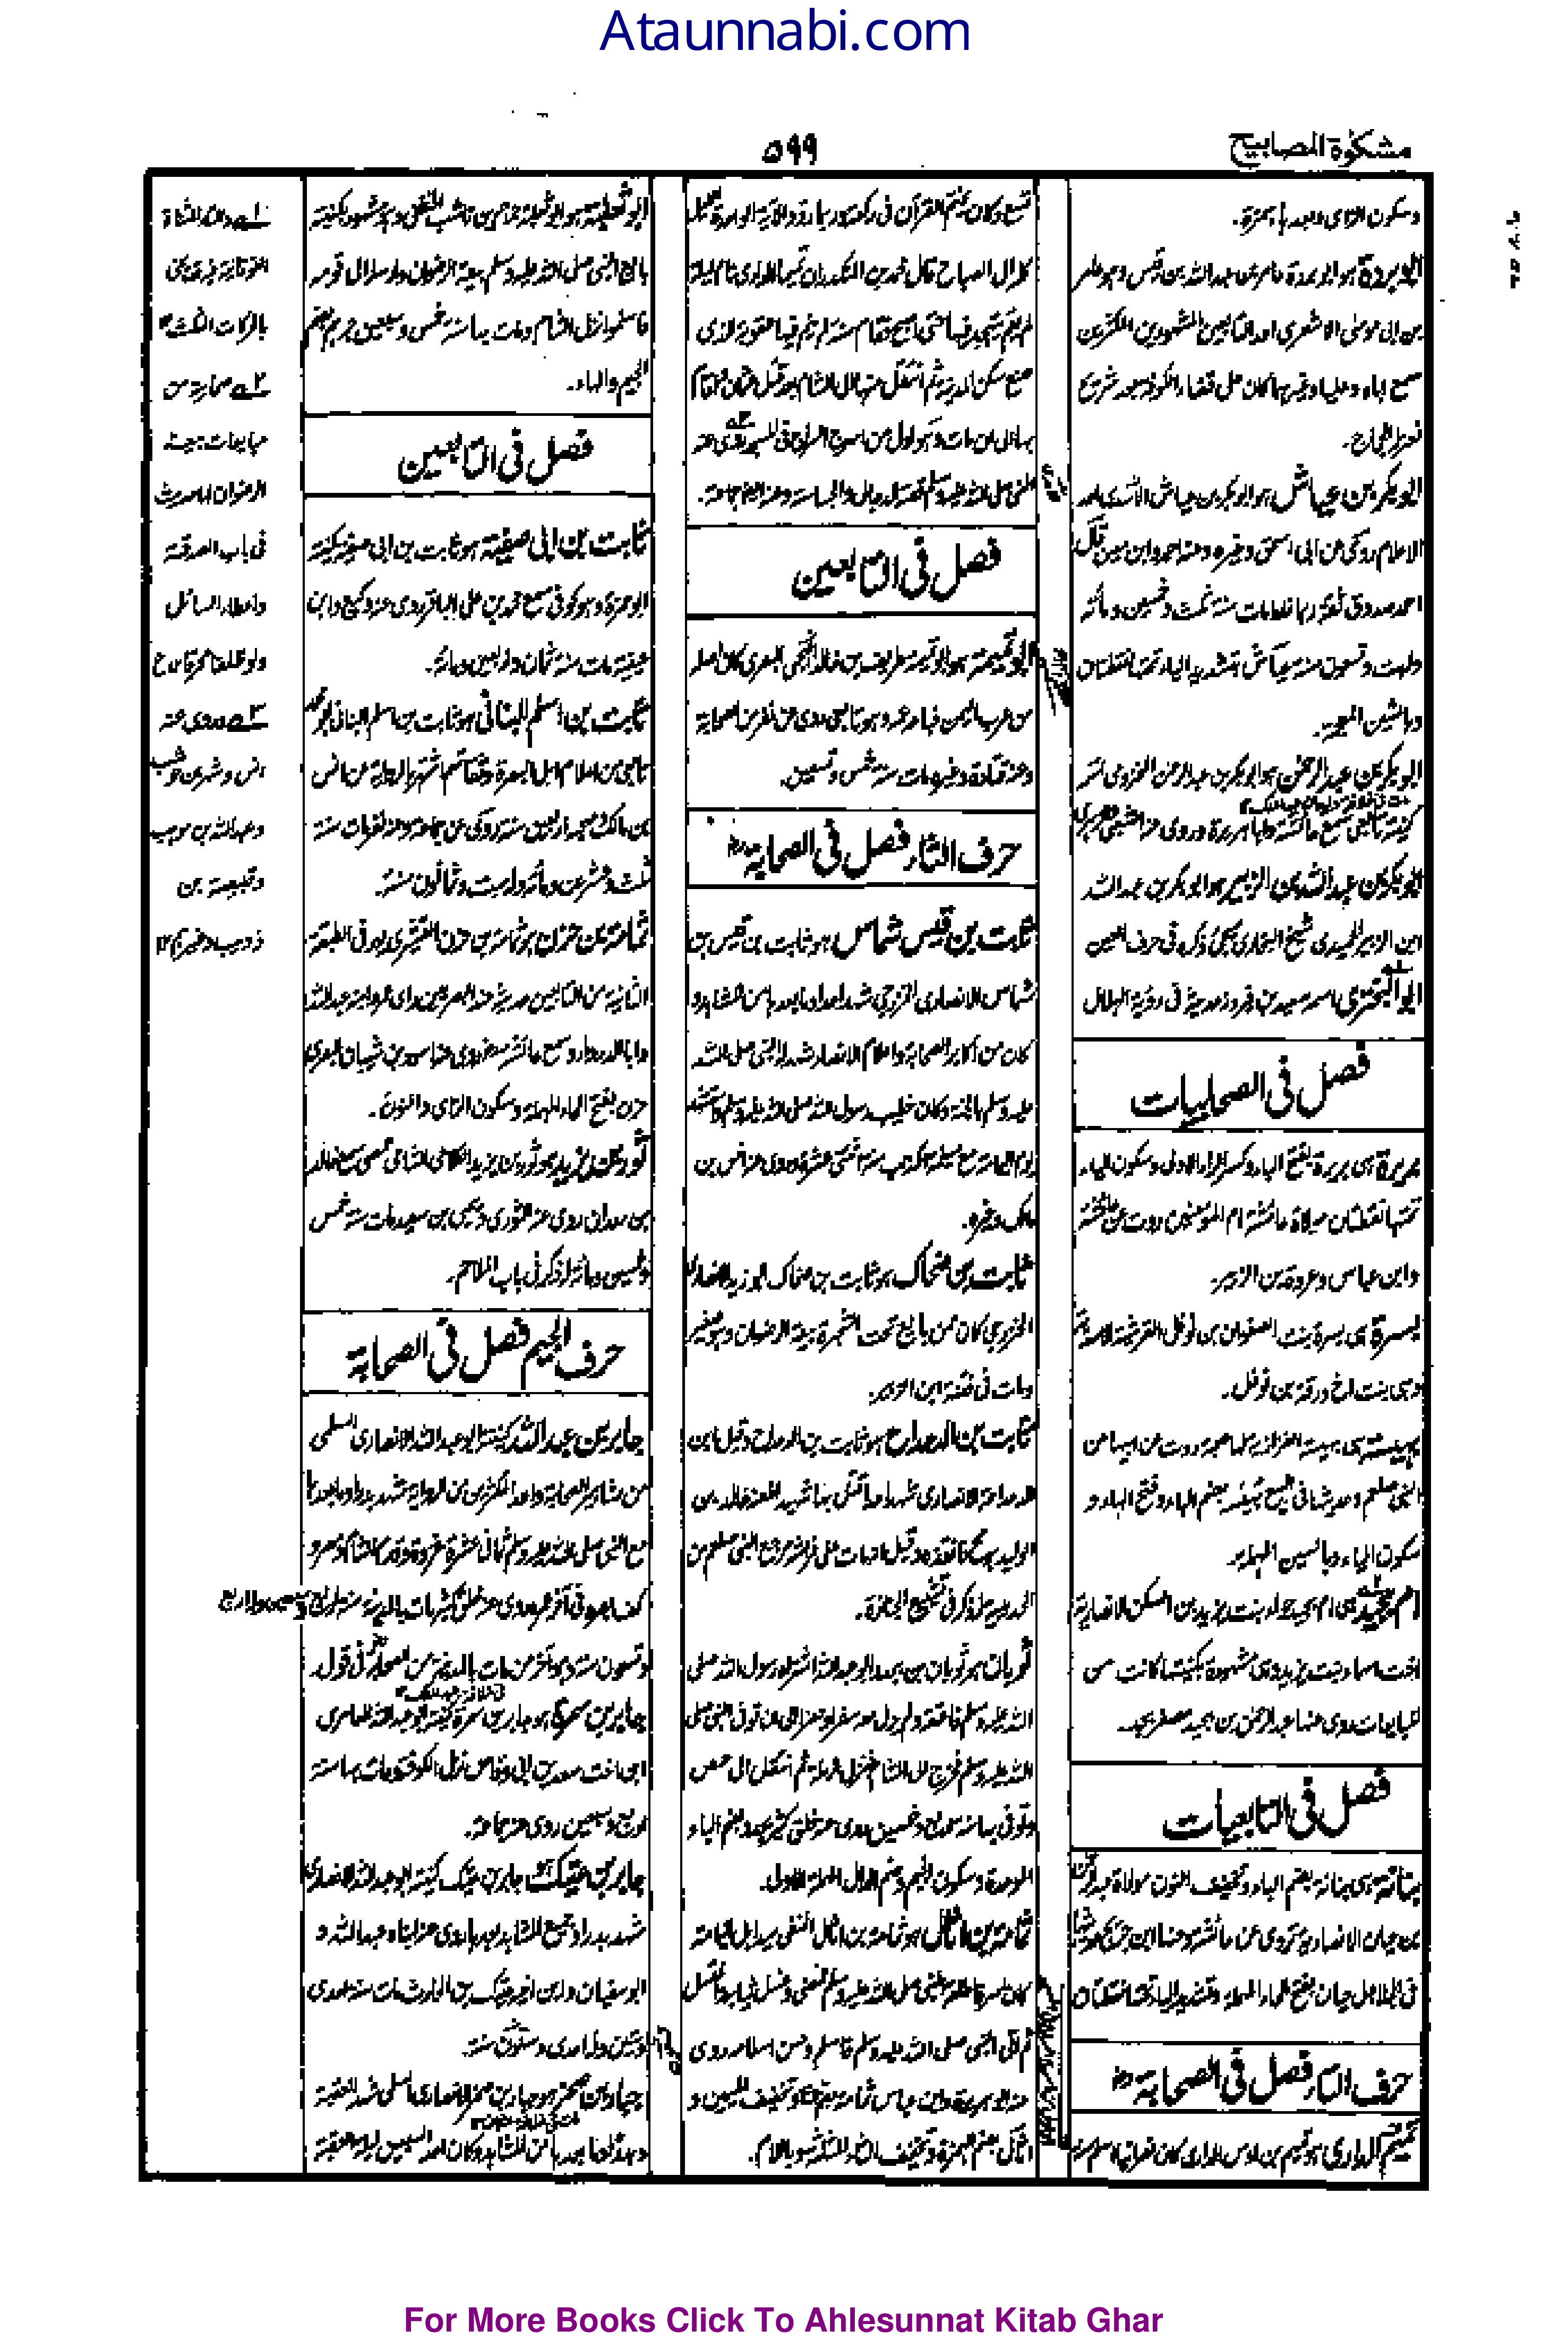 Ataunnabi.com
مشكوة المصابيح
۵۹۹
وسكون الزاى وبعدها همزة۔
ابو بردة هو ابو بردة عامر بن عبد الله بن قيس وهو عامر
بن ابى موسى الاشعرى احد التابعين المشهورين المكثرين
سمع اباه وعليا وغيرهما كان على قضاء الكوفة بعد شريح
فعزله الحجاج۔
ابو بكر بن عياش هو ابو بكر بن عياش الاسدى احد
الاعلام روى عن ابى اسحق وغيره وعنه احمد وابن معين قال
احمد صدوق ثقة ربما غلط مات سنة ثلث وتسعين ومائة
وله ست وتسعون سنة عياش بتشديد الياء تحتها نقطتان
وبالشين المعجمة۔
ابو بكر بن عبد الرحمن هو ابو بكر بن عبد الرحمن المخزومى
كنيته تابعى سمع عائشة وابا هريرة وروى عنه الشعبى والزهرى
ابو بكر بن عبد الله بن الزبير هو ابو بكر بن عبد الله
ابن الزبير الحميدى شيخ البخارى يجئ ذكره فى حرف العين
ابو البخترى اسمه سعيد بن فيروز حديثه فى رؤية الهلال
فصل فى الصحابيات
بريرة هى بريرة بفتح الباء وكسر الراء الاولى وسكون الياء
تحتها نقطتان مولاة عائشة ام المؤمنين روت عن عائشة
وابن عباس وعروة بن الزبير۔
بسرة هى بسرة بنت صفوان بن نوفل القرشية الاسدية
وهى بنت اخ ورقة بن نوفل۔
بهيسة هى بهيسة الفزارية لها صحبة روت عن ابيها عن
النبى صلعم وحديثها فى البيع بهيسة بضم الباء وفتح الهاء و
سكون الياء وبالسين المهملة۔
ام بجيد هى ام بجيد حواء بنت يزيد بن السكن الانصارية
اخت اسماء بنت يزيد وهى مشهورة بكنيتها كانت من
المبايعات روى عنها عبد الرحمن بن بجيد مصغر بجد۔
فصل فى التابعيات
بنانة هى بنانة بضم الباء وتخفيف النون مولاة عبد الرحمن
بن حيان الانصارية تروى عن عائشة وعنها ابن جريج حديثها
فى الجلاجل حيان بفتح الحاء المهملة وتشديد الياء تحتها نقطتان
حرف التاء فصل فى الصحابة
تميم الدارى هو تميم بن اوس الدارى كان نصرانيا اسلم سنة
تسع وكان يختم القرآن فى ركعة وربما ردد الآية الواحدة الليل
كله الى الصباح قال محمد بن المنكدر ان تميما الدارى نام ليلة
لم يقم يتهجد فيها حتى اصبح فقام سنة لم ينم فيها عقوبة للذى
صنع سكن المدينة ثم انتقل منها الى الشام بعد قتل عثمان فاقام
بها الى ان مات وهو اول من اسرج السراج فى المسجد روى عنه
النبى صلى الله عليه وسلم قصة الدجال والجساسة وعنه ايضا جماعة۔
فصل فى التابعين
ابو تميمة هو ابو تميمة طريف بن خالد الهجيمى البصرى كان اصله
من عرب اليمن فباعه عمه وهو تابعى روى عن نفر من الصحابة
وعنه قتادة وغيره مات سنة خمس وتسعين۔
حرف الثاء فصل فى الصحابة
ثابت بن قيس شماس هو ثابت بن قيس بن
شماس الانصارى الخزرجى شهد احدا وما بعدها من المشاهد و
كان من اكابر الصحابة واعلام الانصار شهد له النبى صلى الله
عليه وسلم بالجنة وكان خطيب رسول الله صلى الله عليه وسلم واستشهد
يوم اليمامة مع مسيلمة الكذاب سنة اثنتى عشرة روى عنه انس بن
مالك وغيره۔
ثابت بن ضحاك هو ثابت بن ضحاك ابو زيد الانصارى
الخزرجى كان ممن بايع تحت الشجرة بيعة الرضوان وهو صغير
ومات فى فتنة ابن الزبير۔
ثابت بن الدحداح هو ثابت بن الدحداح وقيل ابن
الدحداحة الانصارى شهد احدا وقتل بها شهيدا طعنه خالد بن
الوليد برمح فانفذه وقيل انه مات على فراشه مرجع النبى صلعم من
الحديبية له ذكر فى تشييع الجنازة۔
ثوبان هو ثوبان بن بجدد ابو عبد الله اشتراه رسول الله صلى
الله عليه وسلم فاعتقه ولم يزل معه سفرا وحضرا الى ان توفى النبى صلى
الله عليه وسلم فخرج الى الشام فنزل الرملة ثم انتقل الى حمص
وتوفى بها سنة اربع وخمسين روى عنه خلق كثير بجدد بضم الباء
الموحدة وسكون الجيم وضم الدال المهملة الاولى۔
ثمامة بن اثال هو ثمامة بن اثال الحنفى سيد اهل اليمامة
كان اسر فاطلقه النبى صلى الله عليه وسلم فمضى وغسل ثيابه واغتسل
ثم اتى النبى صلى الله عليه وسلم فاسلم وحسن اسلامه روى
عنه ابو هريرة وابن عباس ثمامة بضم الثاء وتخفيف الميمين و
اثال بضم الهمزة وتخفيف الثاء المثلثة وباللام۔
ابو ثعلبة هو ابو ثعلبة جرهم بن ناشب الخشنى وهو مشهور بكنيته
بايع النبى صلى الله عليه وسلم بيعة الرضوان وارسله الى قومه
فاسلموا نزل الشام ومات بها سنة خمس وسبعين جرهم بضم
الجيم والهاء۔
فصل فى التابعين
ثابت بن ابى صفية هو ثابت بن ابى صفية كنيته
ابو حمزة وهو كوفى سمع محمد بن على الباقر روى عنه وكيع وابن
عيينة مات سنة ثمان واربعين ومائة۔
ثابت بن اسلم البنانى هو ثابت بن اسلم البنانى ابو محمد
تابعى من اعلام اهل البصرة وثقاتهم اشتهر بالرواية عن انس
بن مالك صحبه اربعين سنة روى عن جماعة وعنه نفر مات سنة
ثلث وعشرين ومائة وله ست وثمانون سنة۔
ثمامة بن حزن هو ثمامة بن حزن القشيرى يعد فى الطبقة
الثانية من التابعين حديثه عند البصريين راى عمر وابنه عبد الله
وابا الدرداء وسمع عائشة روى عنه اسود بن شيبان البصرى
حزن بفتح الحاء المهملة وسكون الزاى والنون۔
ثور بن يزيد هو ثور بن يزيد الكلاعى الشامى الحمصى سمع خالد
بن معدان روى عنه الثورى ويحيى بن سعيد مات سنة خمس
وخمسين ومائة له ذكر فى باب الملاحم۔
حرف الجيم فصل فى الصحابة
جابر بن عبد الله كنيته ابو عبد الله الانصارى السلمى
من مشاهير الصحابة واحد المكثرين من الرواية شهد بدرا وما بعدها
مع النبى صلى الله عليه وسلم ثمانى عشرة غزوة وقدم الشام ومصر و
كف بصره فى آخر عمره روى عنه خلق كثير مات بالمدينة سنة اربع
وتسعون سنة وهو آخر من مات بالمدينة من الصحابة فى قول۔
جابر بن سمرة هو جابر بن سمرة كنيته ابو عبد الله العامرى
ابن اخت سعد بن ابى وقاص نزل الكوفة ومات بها سنة
اربع وسبعين روى عنه جماعة۔
جابر بن عتيك هو جابر بن عتيك كنيته ابو عبد الله الانصارى
شهد بدرا وجميع المشاهد بعدها روى عنه ابناه عبد الله و
ابو سفيان وابن اخيه عتيك بن الحارث مات سنة احدى
وستين وله احدى وستون سنة۔
جبار بن صخر هو جبار بن صخر الانصارى السلمى شهد العقبة
وبدرا وما بعدها من المشاهد وكان احد السبعين ليلة العقبة
من مبايعات بيعة
الرضوان لها حديث
فى باب الصدقة
واعطاء السائل
ولو ظلفا محرقا ۱۲
۳ے وروى عنه
انس وشهر بن حوشب
وعبد الله بن موهب
وقبيصة بن
ذويب وغيرهم ۱۲
For More Books Click To Ahlesunnat Kitab Ghar